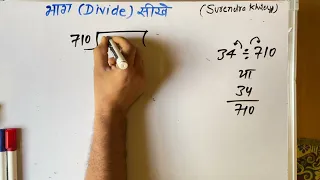 भाग (Divide) सीखे
(Surendra Khilery)
710
34 ÷ 710
या
34
710